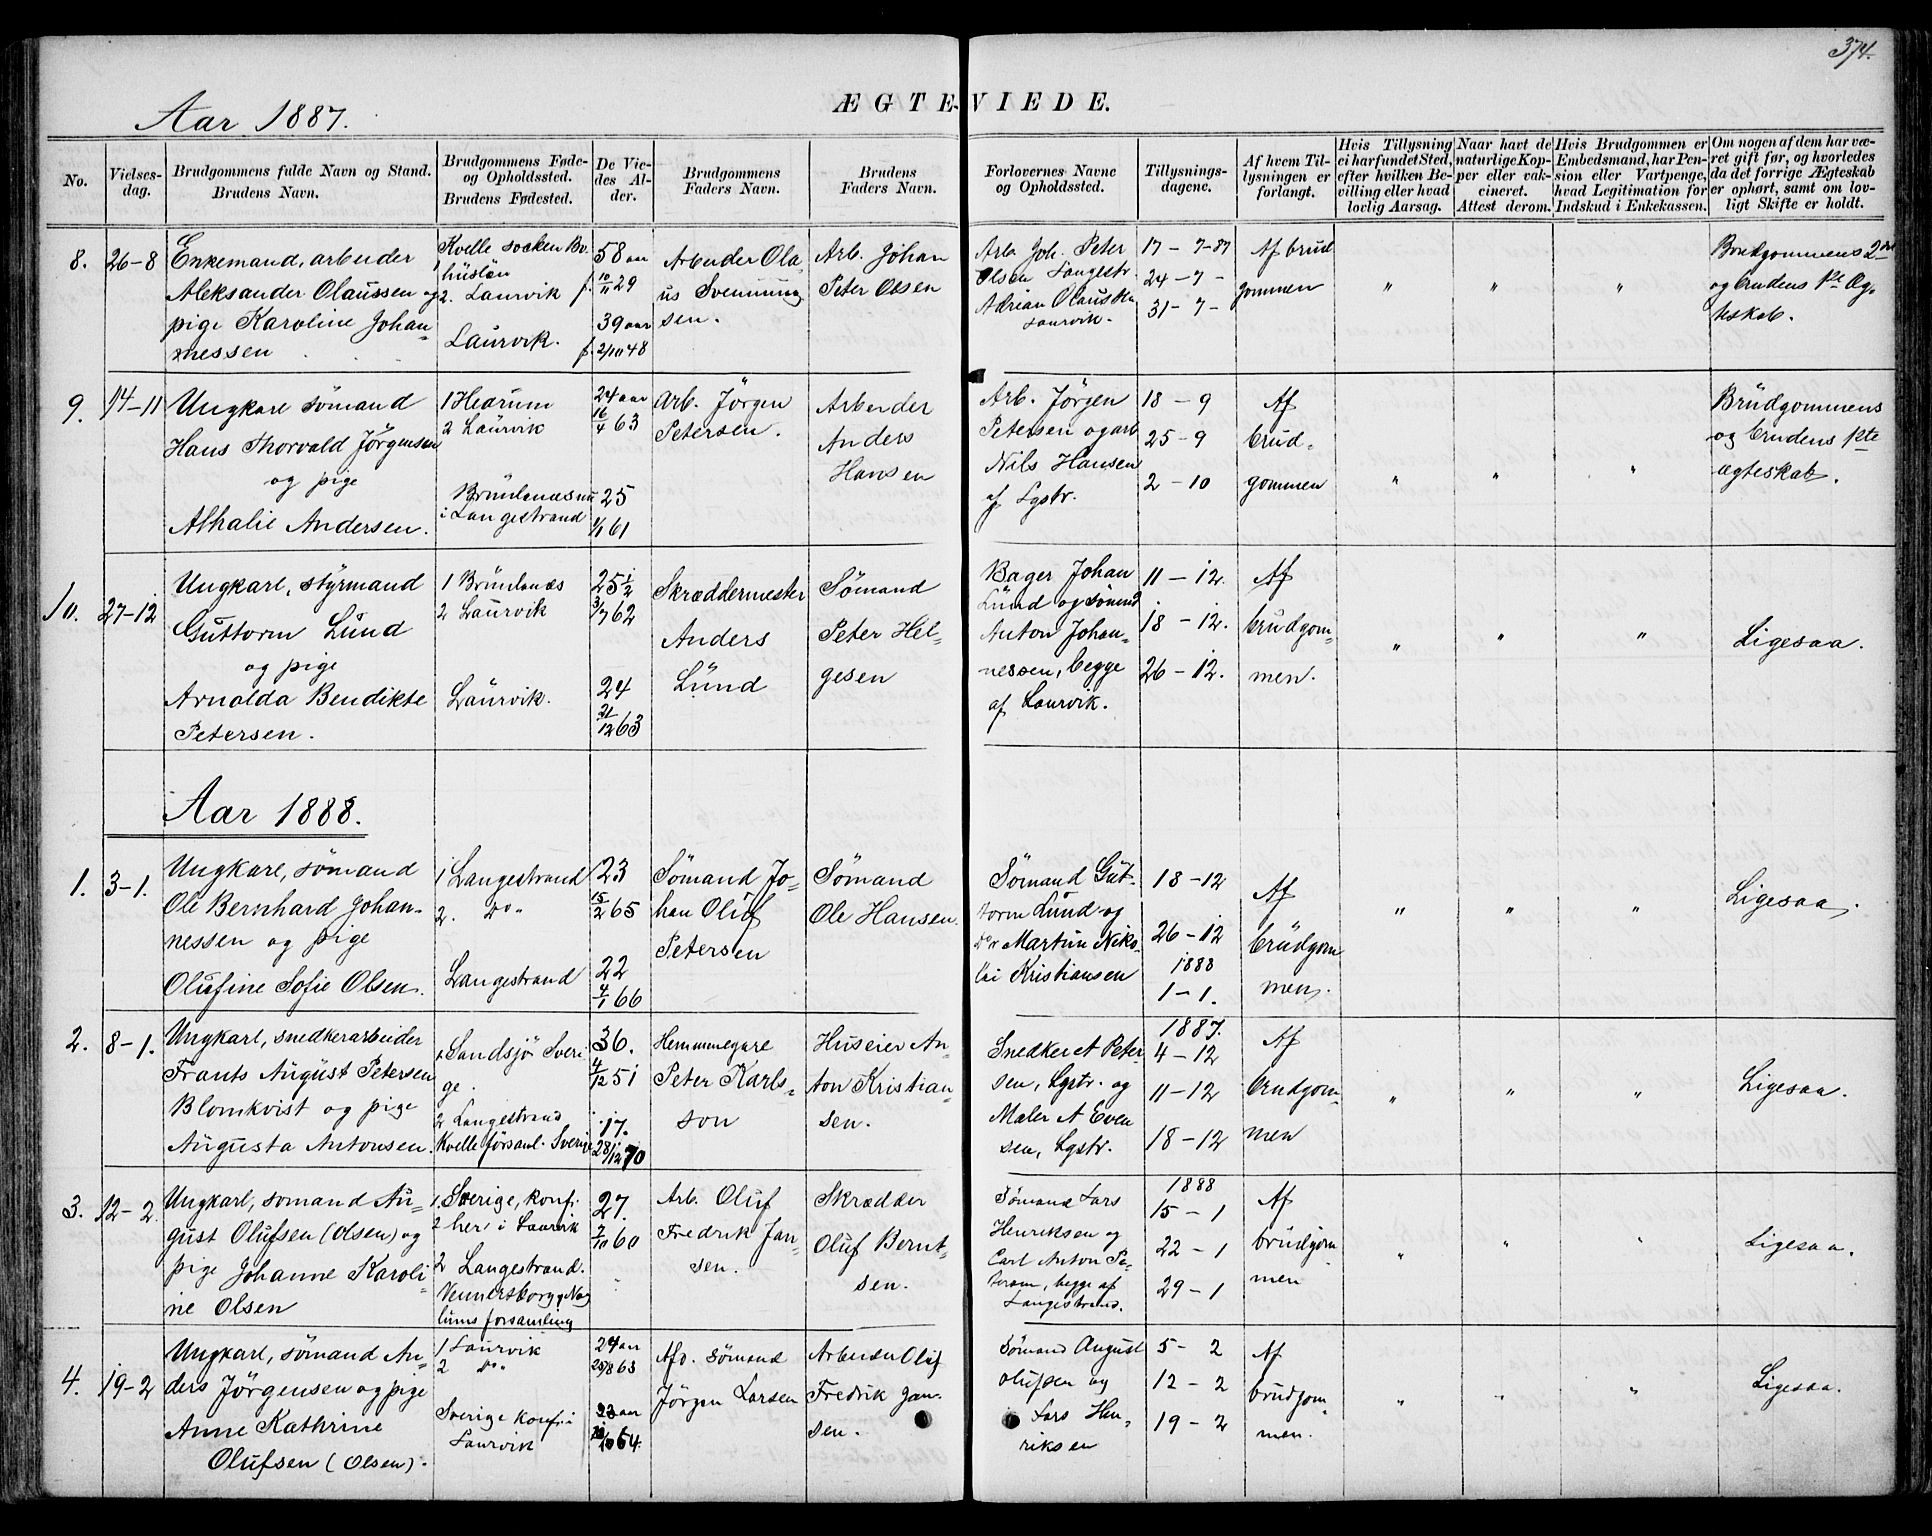 374.
Aar 1887.
ÆGTEVIEDE.
No.
Vielses-
dag.
Brudgommens fulde Navn og Stand.
Brudens Navn.
Brudgommens Føde-
og Opholdssted.
Brudens Fødested.
De Vie-
des Al-
der.
Brudgommens
Faders Navn.
Brudens
Faders Navn.
Forlovernes Navne
og Opholdssted.
Tillysnings-
dagene.
Af hvem Til-
lysningen er
forlangt.
Hvis Tillysning
ei har fundet Sted,
efter hvilken Be-
villing eller hvad
lovlig Aarsag.
Naar havt de
naturlige Kop-
per eller vak-
cineret.
Attest derom.
Hvis Brudgommen er
Embedsmand, har Pen-
sion eller Vartpenge,
hvad Legitimation for
Indskud i Enkekassen.
Om nogen af dem har væ-
ret gift før, og hvorledes
da det forrige Ægteskab
er ophørt, samt om lov-
ligt Skifte er holdt.
8.
26-8
Enkemand, arbeider
Aleksander Olaussen og
pige Karoline Johan-
nessen
Kville socken Bo-
huslän
2. Laurvik
Laurvik.
58 aar
f. 10/11 29
39 aar
f. 2/10 48
Arbeider Ola-
us Svenning-
sen.
Arb. Johan
Peter Olsen
Arb. Joh. Peter
Olsen Langestr.
Adrian Olaussen
Laurvik.
17 - 7-87
24 - 7 -
31 - 7 -
Af brud
gommen
" " "
Brudgommens 2det
og brudens 1ste Æg-
teskab.
9.
14-11
Ungkarl sömand
Hans Thorvald Jörgensen
og pige
Athalie Andersen.
1 Hedrum
2 Laurvik
Brunlanæs nu
i Langestrand
24 aar
16/4 63
25
1/1 61
Arb. Jörgen
Petersen.
Arbeider
Anders
Hansen
Arb. Jörgen
Petersen og arb
Nils Hansen
af Lgstr.
18 - 9
25 - 9
2 - 10
Af
brud-
gommen
" " "
Brudgommens
og brudens 1ste
ægteskab.
10.
27-12
Ungkarl, styrmand
Guttorm Lund
og pige
Arnolda Bendikte
Petersen.
1 Brunlanæs
2 Laurvik
Laurvik.
25 1/2
3/7 62
24
21/12 63
Skræddermester
Anders
Lund
Sömand
Peter Hel-
gesen
Bager Johan
Lund og sömand
Anton Johan-
nessen, begge
af Laurvik.
11 - 12.
18 - 12.
26 - 12.
Af
brudgom-
men.
" " "
Ligesaa.
Aar 1888.
1.
3-1.
Ungkarl, sömand
Ole Bernhard Johan-
nessen og pige
Olufine Sofie Olsen.
1 Langestrand
2. do
Langestrand
23
15/2 65
22
4/1 66
Sömand Jo-
han Oluf
Petersen
Sömand
Ole Hansen.
Sömand Gut-
torm Lund og
do Martin Niko-
lai Kristiansen
18 - 12
26 - 12
1888
1 - 1.
Af
brudgom
men.
" " "
Ligesaa.
2.
8-1.
Ungkarl, snedkerarbeider
Frants August Petersen
Blomkvist og pige
Augusta Antonsen.
1 Sandsjö Sveri
ge.
2 Langestrand
Kville församl. Sverige
36.
4/12 51
17.
28/12 70
Hemmegare
Peter Karls-
son
Huseier An-
ton Kristian-
sen.
Snedker A Peter-
sen, Lgstr. og
Maler A Even
sen, Lgstr.
1887.
4 - 12
11 - 12
18 - 12
Af
brudgom-
men
" " "
Ligesaa.
3.
12-2
Ungkarl, sömand Au-
gust Olufsen (Olsen) og
pige Johanne Karoli
ne Olsen
1. Sverige, konf.
her i Laurvik
2 Langestrand.
Vennersborg, Nag
lums forsamling
27.
7/10 60
Arb. Oluf
Fredrik Jan-
sen.
Skrædder
Oluf Bernt-
sen.
Sömand Lars
Henriksen og
Carl Anton Pe-
terson, begge af
Langestrand.
1888
15 - 1
22 - 1
29 - 1
Af
brudgom
men
" " "
Ligesaa.
4.
19-2
Ungkarl, sömand An-
ders Jörgensen og pige
Anne Kathrine
Olufsen (Olsen).
1 Laurvik
2 do
Sverige konf. i
Laurvik
24 aar
23 aar
64
Afd. sömand
Jörgen Larsen
Arbeider Oluf
Fredrik Jan-
sen.
Sömand August
Olufsen og
Lars Hen-
riksen
5 - 2
12 - 2
19 - 2
Af
brudgom-
men.
" " "
Ligesaa.